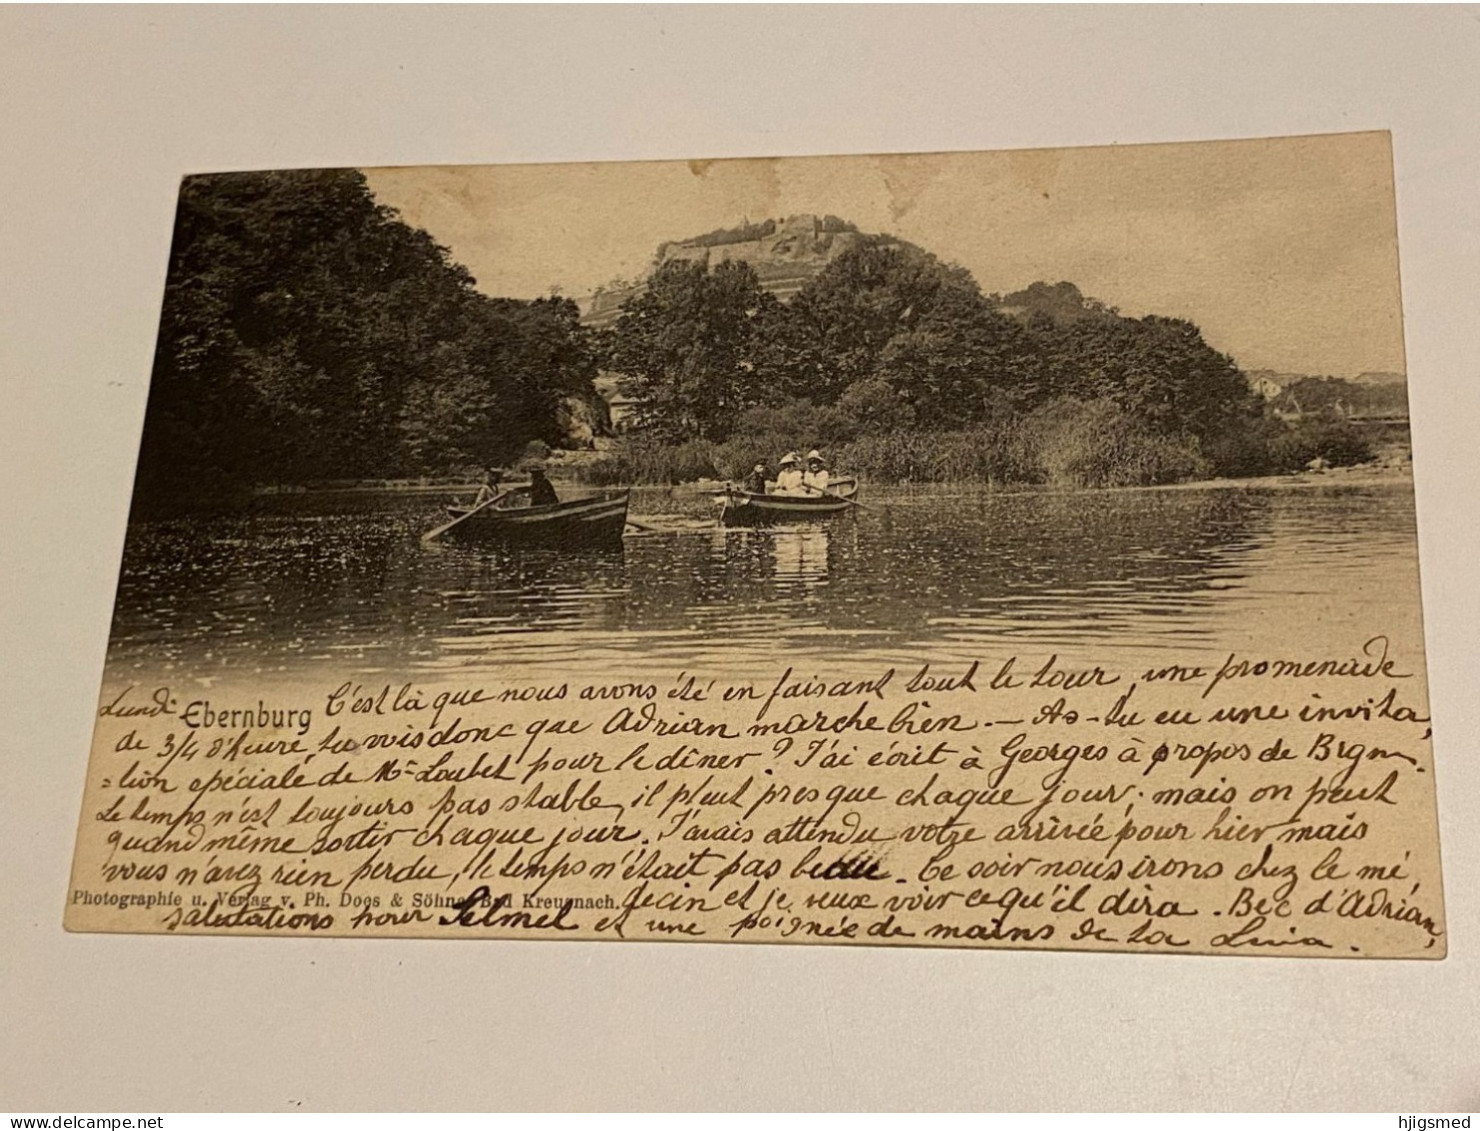 Lundi Ebernburg C'est là que nous avons été en faisant tout le tour, une promenade
de 3/4 d'heure, tu vois donc que Adrian marche bien. — As-tu eu une invita,
=tion spéciale de Mr Loubet pour le dîner? J'ai écrit à Georges à propos de
Le temps n'est toujours pas stable, il pleut presque chaque jour; mais on peut
quand même sortir chaque jour. J'avais attendu votre arrivée pour hier mais
vous n'avez rien perdu, le temps n'était pas beau. Ce soir nous irons chez le mé,
Photographie u. Verlag v. Ph. Doos & Söhne, Bad Kreuznach. decin et je veux voir ce qu'il dira. Bec d'Adrian,
salutations pour Selmel et une poignée de mains de ta
hjigsmed